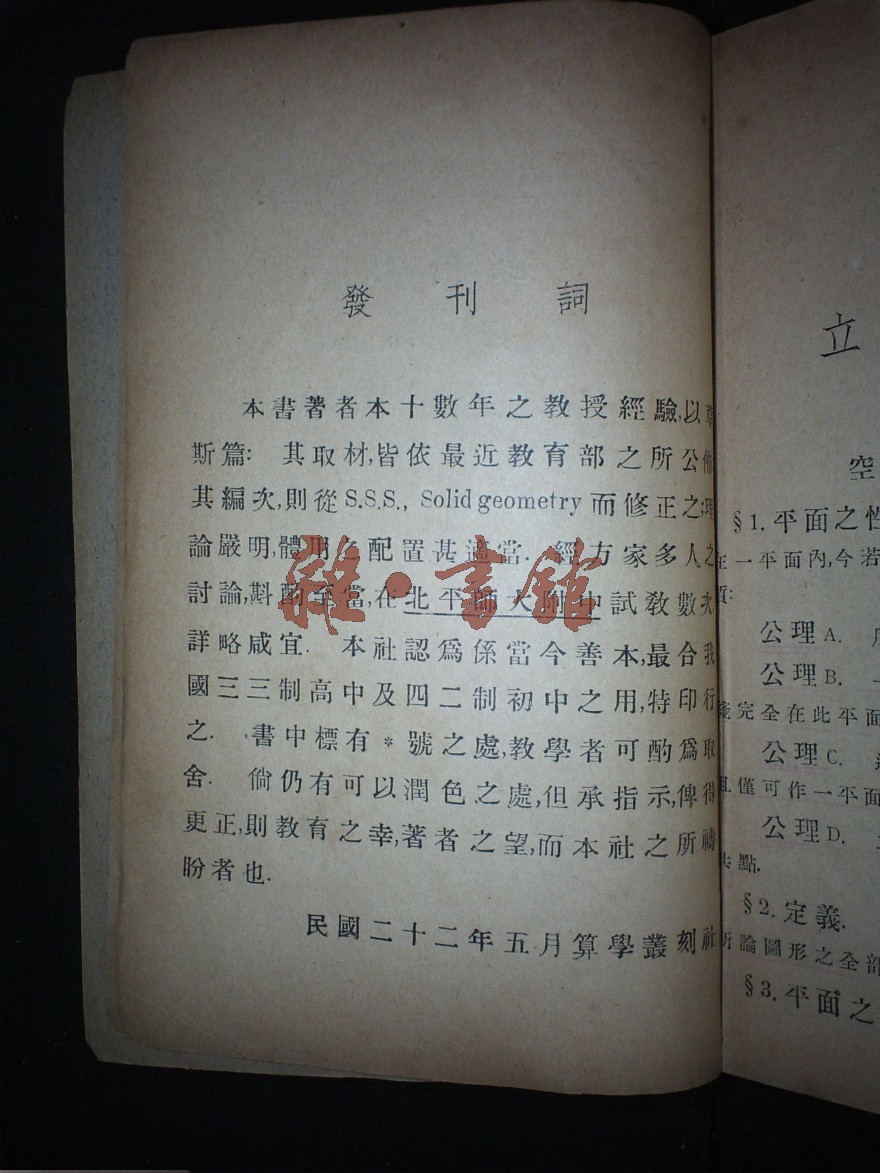 發刊詞
本書著者本十數年之教授經驗,以
斯篇: 其取材,皆依最近教育部之所公佈
其編次,則從 S.S.S., Solid geometry 而修正之;理
論嚴明,體用之配置甚適當. 經方家多人之
討論,斟酌至當,在北平師大附中試教數次
詳略咸宜. 本社認爲係當今善本,最合我
國三三制高中及四二制初中之用,特印行
之. 書中標有 * 號之處,教學者可酌爲取
舍. 倘仍有可以潤色之處,但承指示,俾得
更正,則教育之幸,著者之望,而本社之所禱
盼者也.
民國二十二年五月算學叢刻社
雜·書館
立
空
§1. 平面之性
在一平面內,今若
質:
公理 A.
公理 B. 一
完全在此平面
公理 C.
且僅可作一平面
公理 D.
共點.
§2. 定義.
所論圖形之全部
§3. 平面之